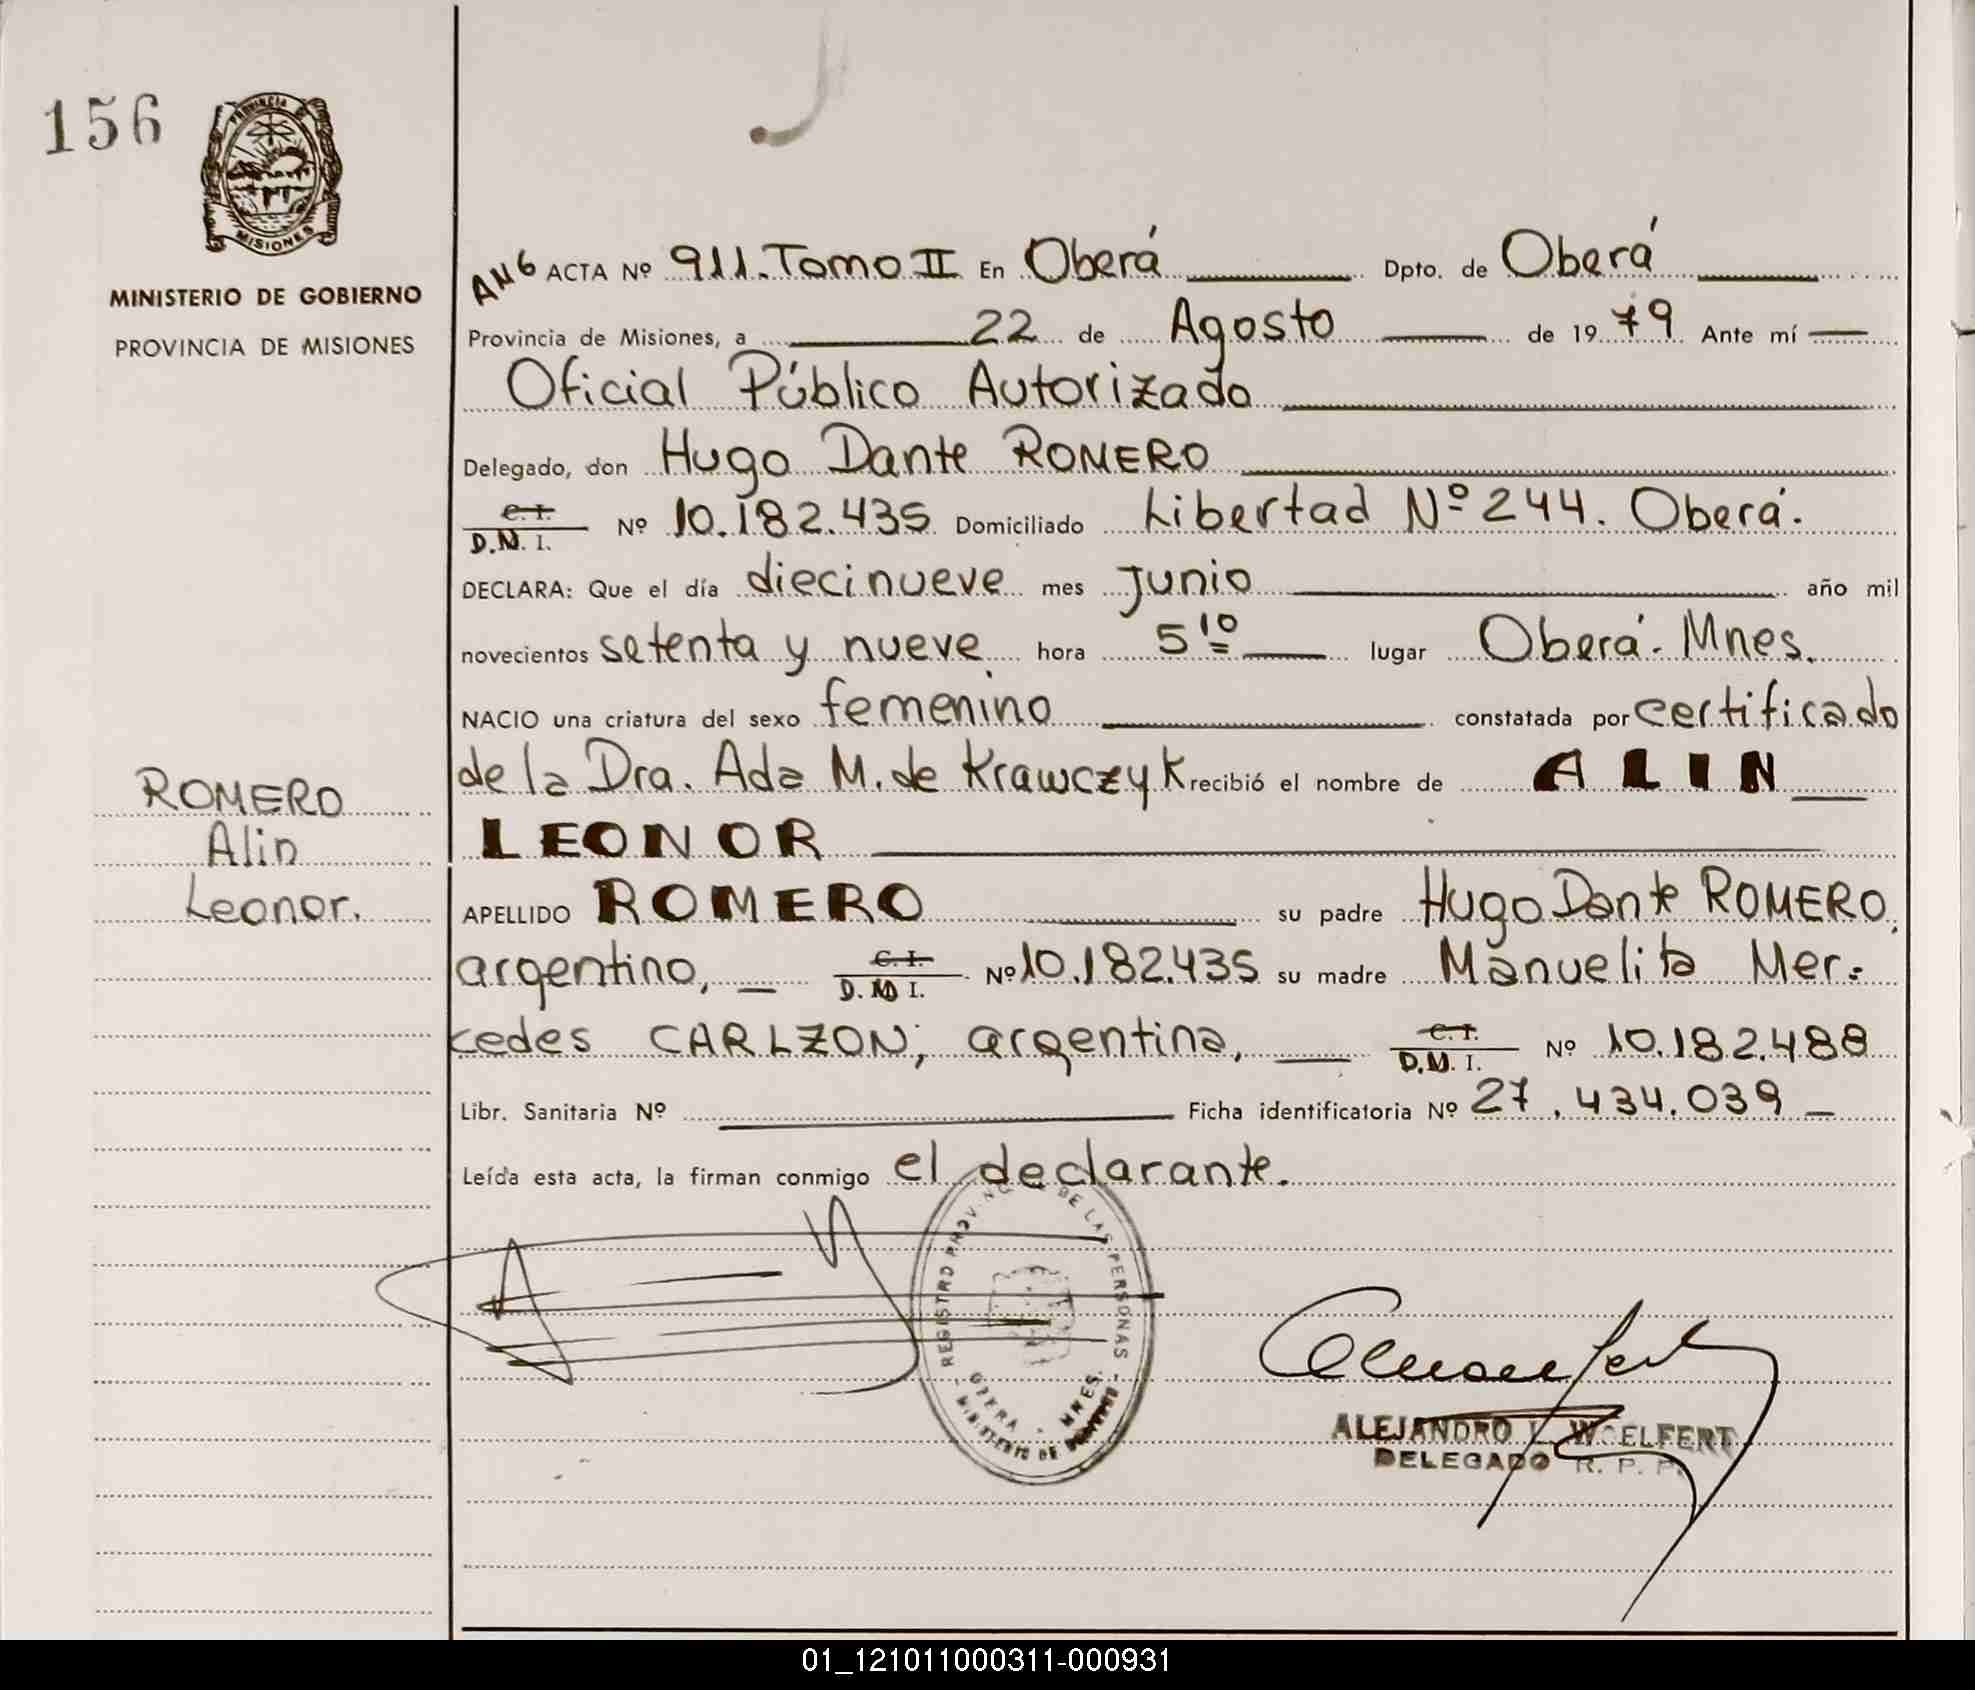 156
PROVINCIA DE
MISIONES
MINISTERIO DE GOBIERNO
PROVINCIA DE MISIONES
ROMERO
Alin
Leonor.
ACTA Nº 911. Tomo II En Oberá Dpto. de Oberá
Provincia de Misiones, a 22 de Agosto de 1979 Ante mí
Oficial Público Autorizado
Delegado, don Hugo Dante ROMERO
C. I.
D.N. I. Nº 10.182.435 Domiciliado Libertad Nº 244. Oberá.
DECLARA: Que el día diecinueve mes junio año mil
novecientos setenta y nueve hora 5 10 lugar Oberá- Mnes.
NACIO una criatura del sexo femenino constatada por certificado
de la Dra. Ada M. de Krawczyk recibió el nombre de ALIN
LEONOR
APELLIDO ROMERO su padre Hugo Dante ROMERO,
argentino, C. I. D. N I. Nº 10.182.435 su madre Manuelita Mer=
cedes CARLZON, argentina, C. I. D.N. I. Nº 10.182.488
Libr. Sanitaria Nº Ficha identificatoria Nº 27.434.039
Leída esta acta, la firman conmigo el declarante.
REGISTRO PROVINC DE LAS PERSONAS
OBERA - MNES.
MINISTERIO DE GOBIERNO
ALEJANDRO L. WOELFERT
DELEGADO R. P. P.
01_121011000311-000931